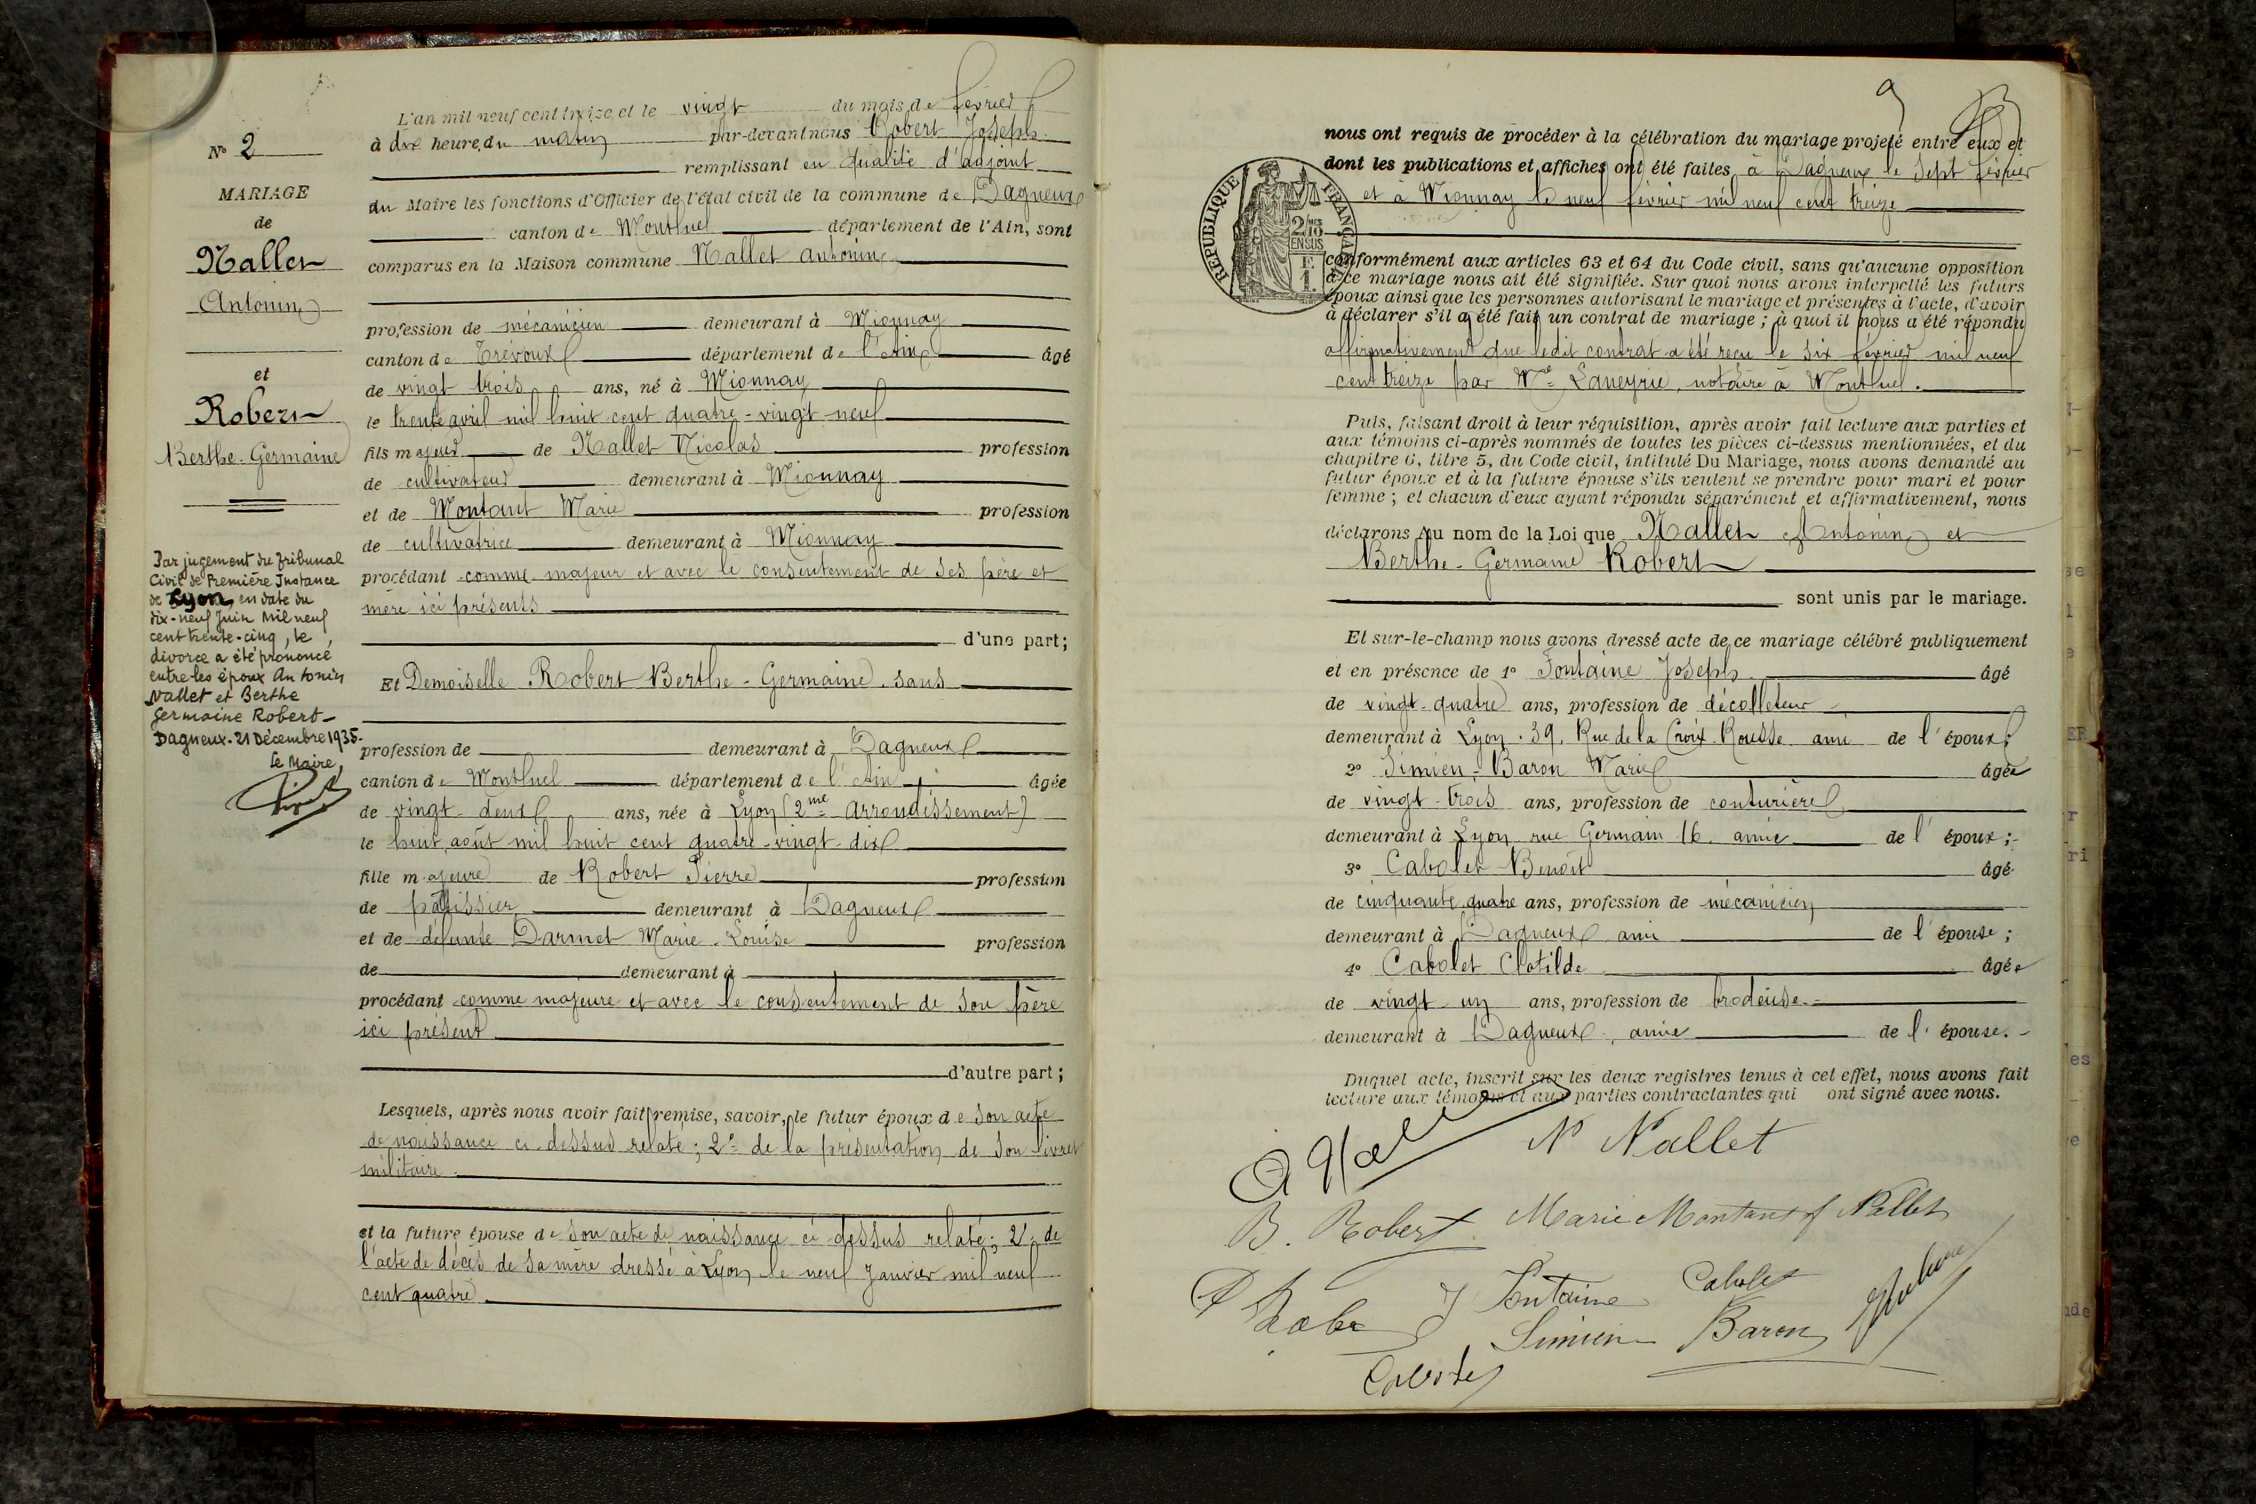 L'an mil neuf cent treize et le vingt du mois de février
à dix heure du matin par-devant nous Robert Joseph
remplissant en qualité d'adjoint
du Maire les fonctions d'Officier de l'état civil de la commune de Dagneux
canton de Montluel département de l'Ain, sont
comparus en la Maison commune Nallet Antonin
profession de mécanicien demeurant à Mionnay
canton de Trévoux département de l'Ain âgé
de vingt trois ans, né à Mionnay
le trente avril mil huit cent quatre-vingt neuf
fils majeur de Nallet Nicolas profession
de cultivateur demeurant à Mionnay
et de Montant Marie profession
de cultivatrice demeurant à Mionnay
procédant comme majeur et avec le consentement de ses père et
mère ici présents
d'une part;
Et Demoiselle Robert Berthe-Germaine sans
profession de demeurant à Dagneux
canton de Montluel département de l'Ain âgée
de vingt-deux ans, née à Lyon (2me arrondissement)
le huit août mil huit cent quatre-vingt-dix
fille majeure de Robert Pierre profession
de pâtissier demeurant à Dagneux
et de défunte Darmet Marie-Louise profession
de demeurant à
procédant comme majeure et avec le consentement de son père
ici présent
d'autre part;
Lesquels, après nous avoir fait remise, savoir, le futur époux de son acte
de naissance ci-dessus relaté; 2° de la présentation de son livret
militaire
et la future épouse de son acte de naissance ci-dessus relaté; 2° de
l'acte de décès de sa mère dressé à Lyon le neuf janvier mil neuf
cent quatre
N° 2
MARIAGE
de
Nallet
Antonin
et
Robert
Berthe-Germaine
Par jugement du Tribunal
Civil de Première Instance
de Lyon, en date du
dix-neuf Juin Mil neuf
cent trente-cinq, le
divorce a été prononcé
entre les époux Antonin
Nallet et Berthe
Germaine Robert-
Dagneux-21 Décembre 1935.
Le Maire,
9
nous ont requis de procéder à la célébration du mariage projeté entre eux et
dont les publications et affiches ont été faites à Dagneux le sept février
et à Mionnay le neuf février mil neuf cent treize
RÉPUBLIQUE FRANÇAISE
2/10 EN SUS
F. 1.
conformément aux articles 63 et 64 du Code civil, sans qu'aucune opposition
à ce mariage nous ait été signifiée. Sur quoi nous avons interpellé les futurs
époux ainsi que les personnes autorisant le mariage et présentes à l'acte, d'avoir
à déclarer s'il a été fait un contrat de mariage; à quoi il nous a été répondu
affirmativement que ledit contrat a été reçu le six février mil neuf
cent treize par Me Laneyrie, notaire à Montluel.
Puis, faisant droit à leur réquisition, après avoir fait lecture aux parties et
aux témoins ci-après nommés de toutes les pièces ci-dessus mentionnées, et du
chapitre 6, titre 5, du Code civil, intitulé Du Mariage, nous avons demandé au
futur époux et à la future épouse s'ils veulent se prendre pour mari et pour
femme; et chacun d'eux ayant répondu séparément et affirmativement, nous
déclarons Au nom de la Loi que Nallet Antonin et
Berthe-Germaine Robert
sont unis par le mariage.
Et sur-le-champ nous avons dressé acte de ce mariage célébré publiquement
et en présence de 1° Fontaine Joseph âgé
de vingt-quatre ans, profession de décolleteur
demeurant à Lyon. 39, Rue de la Croix-Rousse ami de l'époux;
2° Simien-Baron Marie âgée
de vingt-trois ans, profession de couturière
demeurant à Lyon rue Germain 16. amie de l'époux;
3° Cabolet Benoît âgé
de cinquante quatre ans, profession de mécanicien
demeurant à Dagneux ami de l'épouse;
4° Cabolet Clotilde âgée
de vingt-un ans, profession de brodeuse
demeurant à Dagneux, amie de l'épouse.
Duquel acte, inscrit sur les deux registres tenus à cet effet, nous avons fait
lecture aux témoins et aux parties contractantes qui ont signé avec nous.
N Nallet
B. Robert Marie Montant f Nallet
J Fontaine Cabolet
Simien Baron